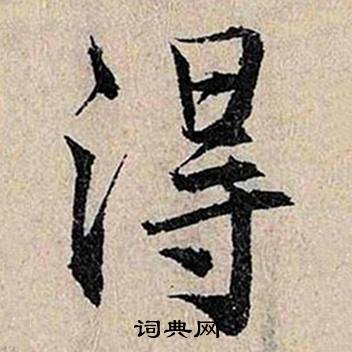 得
词典网